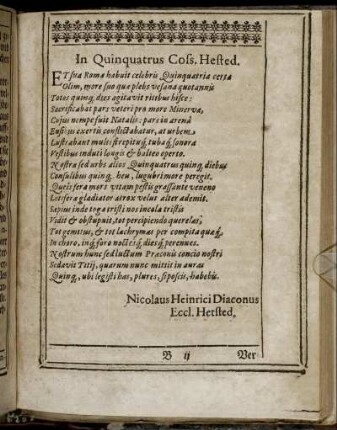 In Quinquatrus Coss. Hetsted.
ET sua Romæ habuit celebris Quinquatria certa
Olim, more suo quæ plebs vesana quotannis
Totos quinq; dies agitavit ritibus hisce:
Sacrificabat pars veteri pro more Minervæ,
Cujus nempe fuit Natalis: pars in arenâ
Ensibus exertis conflictabatur, at urbem
Lustrabant multi strepituq́; tubaq́; sonora
Vestibus induti longis & bolteo operto.
Nostra sed urbs alios Quinquatrus quinq; diebus
Consulibus quinq; heu, lugubri more peregit.
Queis fera mors vitam pestis grassante veneno
Letifera gladiator atrox velut alter ademit.
Sæpius inde toga tristi nos incola tristis
Vidit & obstupuit, tot percipiendo querelas,
Tot gemitus, & tot lachrymas per compita quaq́;
In choro, inq́; foro noctesq́; diesq́; perennes.
Nostrum hunc sed luctum Præconii concio nostri
Sedavit Titij, quarum nunc mittit in auras
Quinq;, ubi legisti has, plures, si poscis, habebis.
Nicolaus Heinrici Diaconus
Eccl. Hetsted.
B ij
Ver-